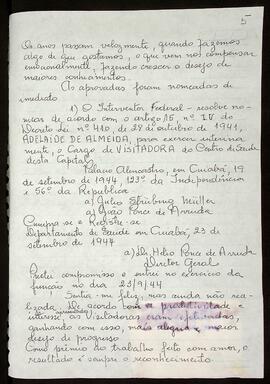 5
Os anos passam velozmente, quando fazemos
algo de que gostamos, o que vem nos compensar
emocionalmente, fazendo crescer o desejo de
maiores conhecimentos.
As aprovadas foram nomeadas de
imediato
1) O Interventor Federal - resolve no-
mear de acordo com o artigo 15, nº IV do
Decreto Lei nº 410, de 28 de outubro de 1941,
ADELAIDE DE ALMEIDA, para exercer interina-
mente, o Cargo de VISITADORA do Centro de Saúde
desta Capital.
Palácio Alencastro, em Cuiabá, 19
de setembro de 1944, 123º da Independência
e 56º da República
a) Julio Strübing Müller
a) João Ponce de Arruda
Cumpra-se e Registre-se
Departamento de Saúde em Cuiabá, 23 de
setembro de 1944
a) Dr. Helio Ponce de Arruda
Diretor Geral
Prestei compromisso e entrei no exercício da
função no dia 23/9/44
Sentia-me feliz, mas ainda não rea-
lizada. De acordo com a produtividade e
interesse, as Visitadoras eram
ganhando com isso, mais alegria e maior
desejo de progresso
Como prêmio do trabalho feito com amor, o
resultado é sempre o reconhecimento.